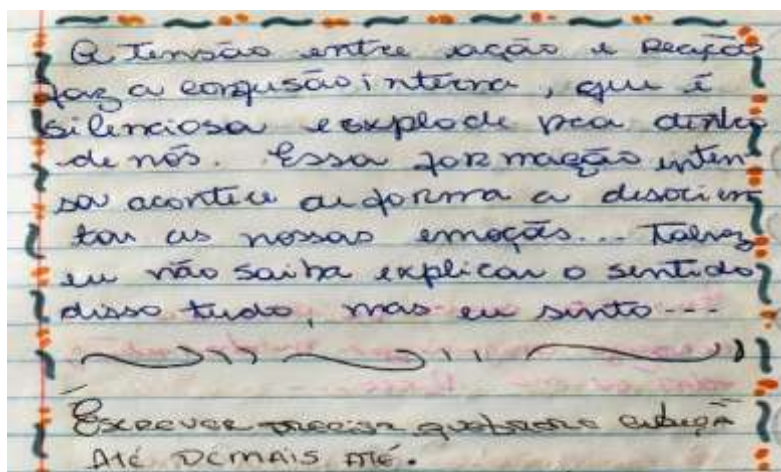 A Tensão entre ração e Reação
faz a confusão interna, que é
silenciosa e explode pra dentro
de nós. Essa formação inten
sa acontece de forma a desorien
tar as nossas emoções... Talvez
eu não saiba explicar o sentido
disso tudo, mas eu sinto...
Escrever precisa quebrar a cabeça
Até DEMAIS Até.